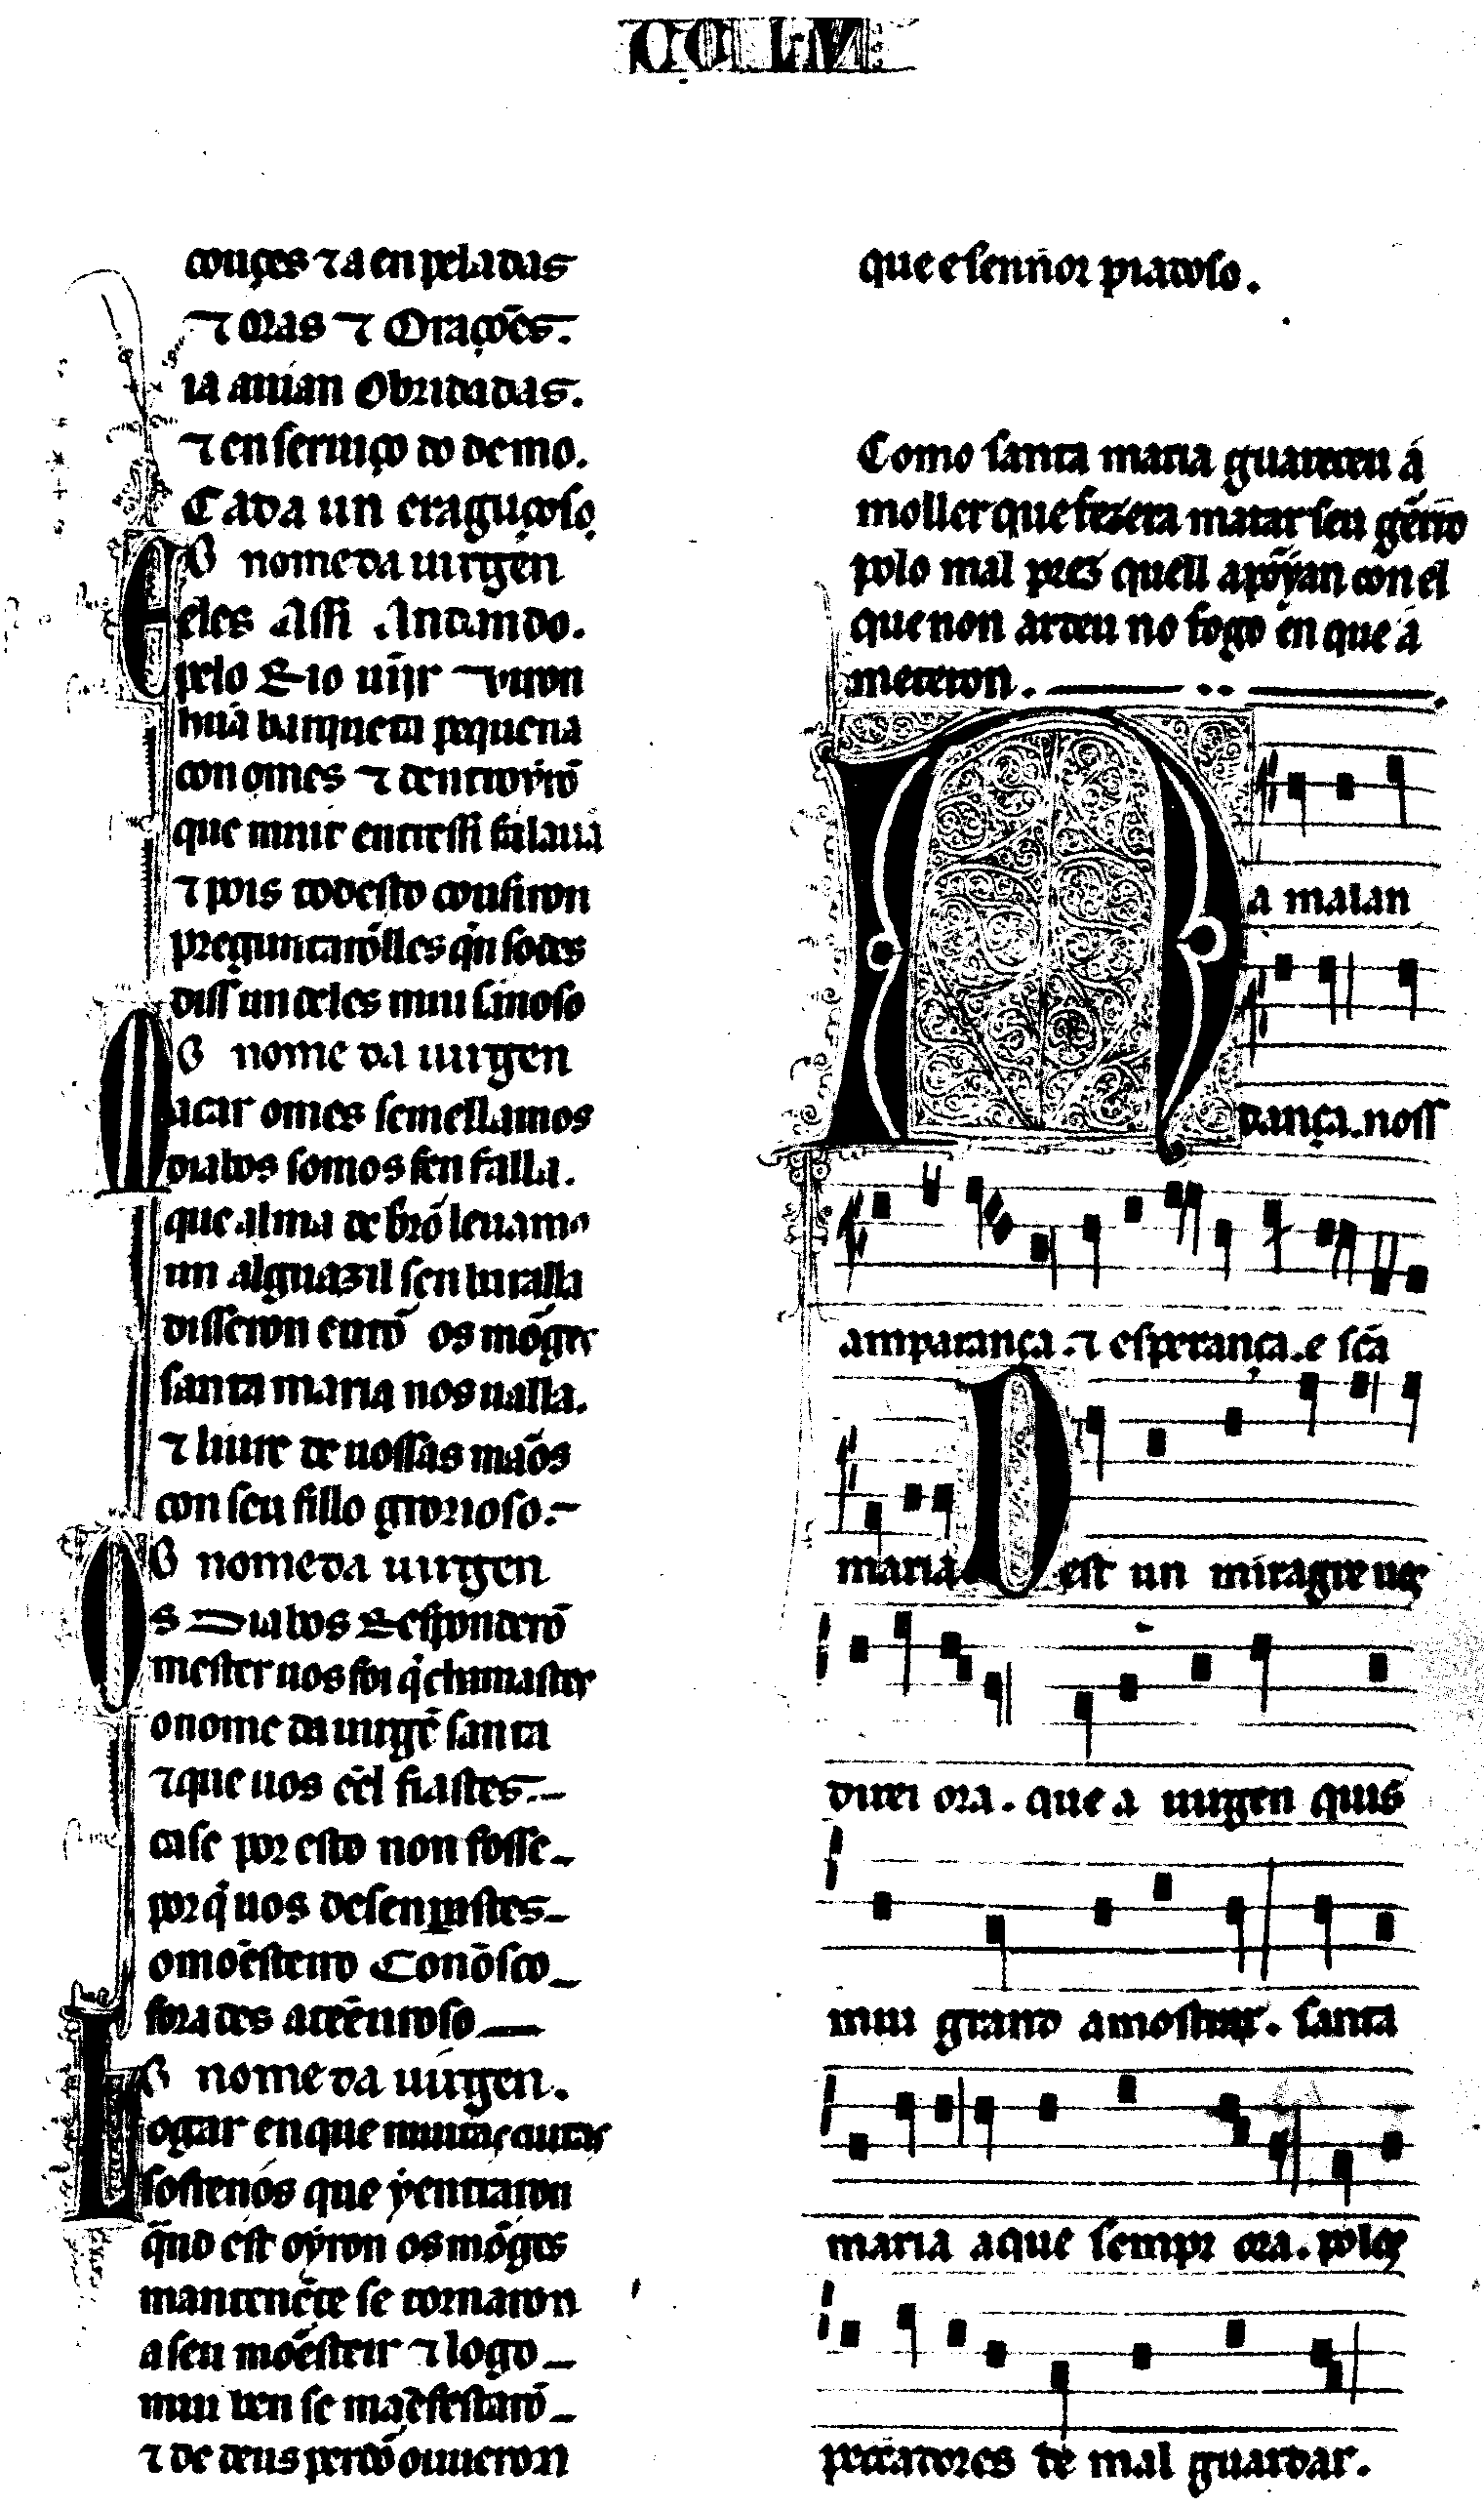 couçes ⁊ a en peladas
⁊ oras ⁊ Oraçoẽs.
ia auian Obridadas.
⁊ en seruiço do demo.
Cada un era guçoso
O nome da uirgen
Eles Assi Andando.
pelo Rio uĩjr uiron
hũa barqueta pequena
con omes ⁊ dentr oyrõ
que muit entressi falauã
⁊ pois tod esto consiron
preguntarõlles q̃n sodes
diss un deles mui sinoso
O nome da uirgen
Macar omes semellamos
diabos somos sen falla.
que alma de brõ leuamos
un alguazil sen baralla
disseron entõ os mõges
santa maria nos ualla.
⁊ liure de uossas mãos
con seu fillo grorioso.
O nome da uirgen
Os Diabos Responderõ
mester uos foi q̃ chamastes
o nome da uirgẽ santa
⁊ que uos eel fiastes.
ca se por esto non fosse
por q̃ uos desenparastes
o mõesteiro Conosco
forades atrẽuroso
O nome da uirgen.
Logar en que muitas cuitas
sofrenos que y entraron
q̃nd est oyron os mõges
mantenẽte se tornaron
a seu mõesteir ⁊ logo
mui ben se maẽfestarõ
⁊ de deus perdõ ouueron
que e sennor piadoso.
Como santa maria guareceu á
moller que fezera matar seu gẽrro
polo mal prez quell apõyan con el
que non ardeu no fogo en que á
meteron.
Na malan
dança. noss
amparança. ⁊ esperança. e scã
maria D est un miragre uos
direi ora. que a uirgen quis
mui grand amostrar. santa
maria a que sempr ora. polos
peccadores de mal guardar.